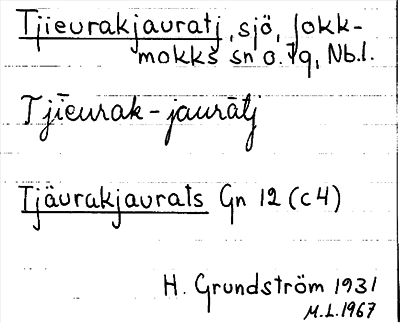 Tjieurakjauratj, sjö, Jokk-
mokks sn o. tg, Nb.l.
Tjīeurak-jaurātj
Tjäurakjaurats Gn 12 (c4)
H. Grundström 1931
M.L. 1967